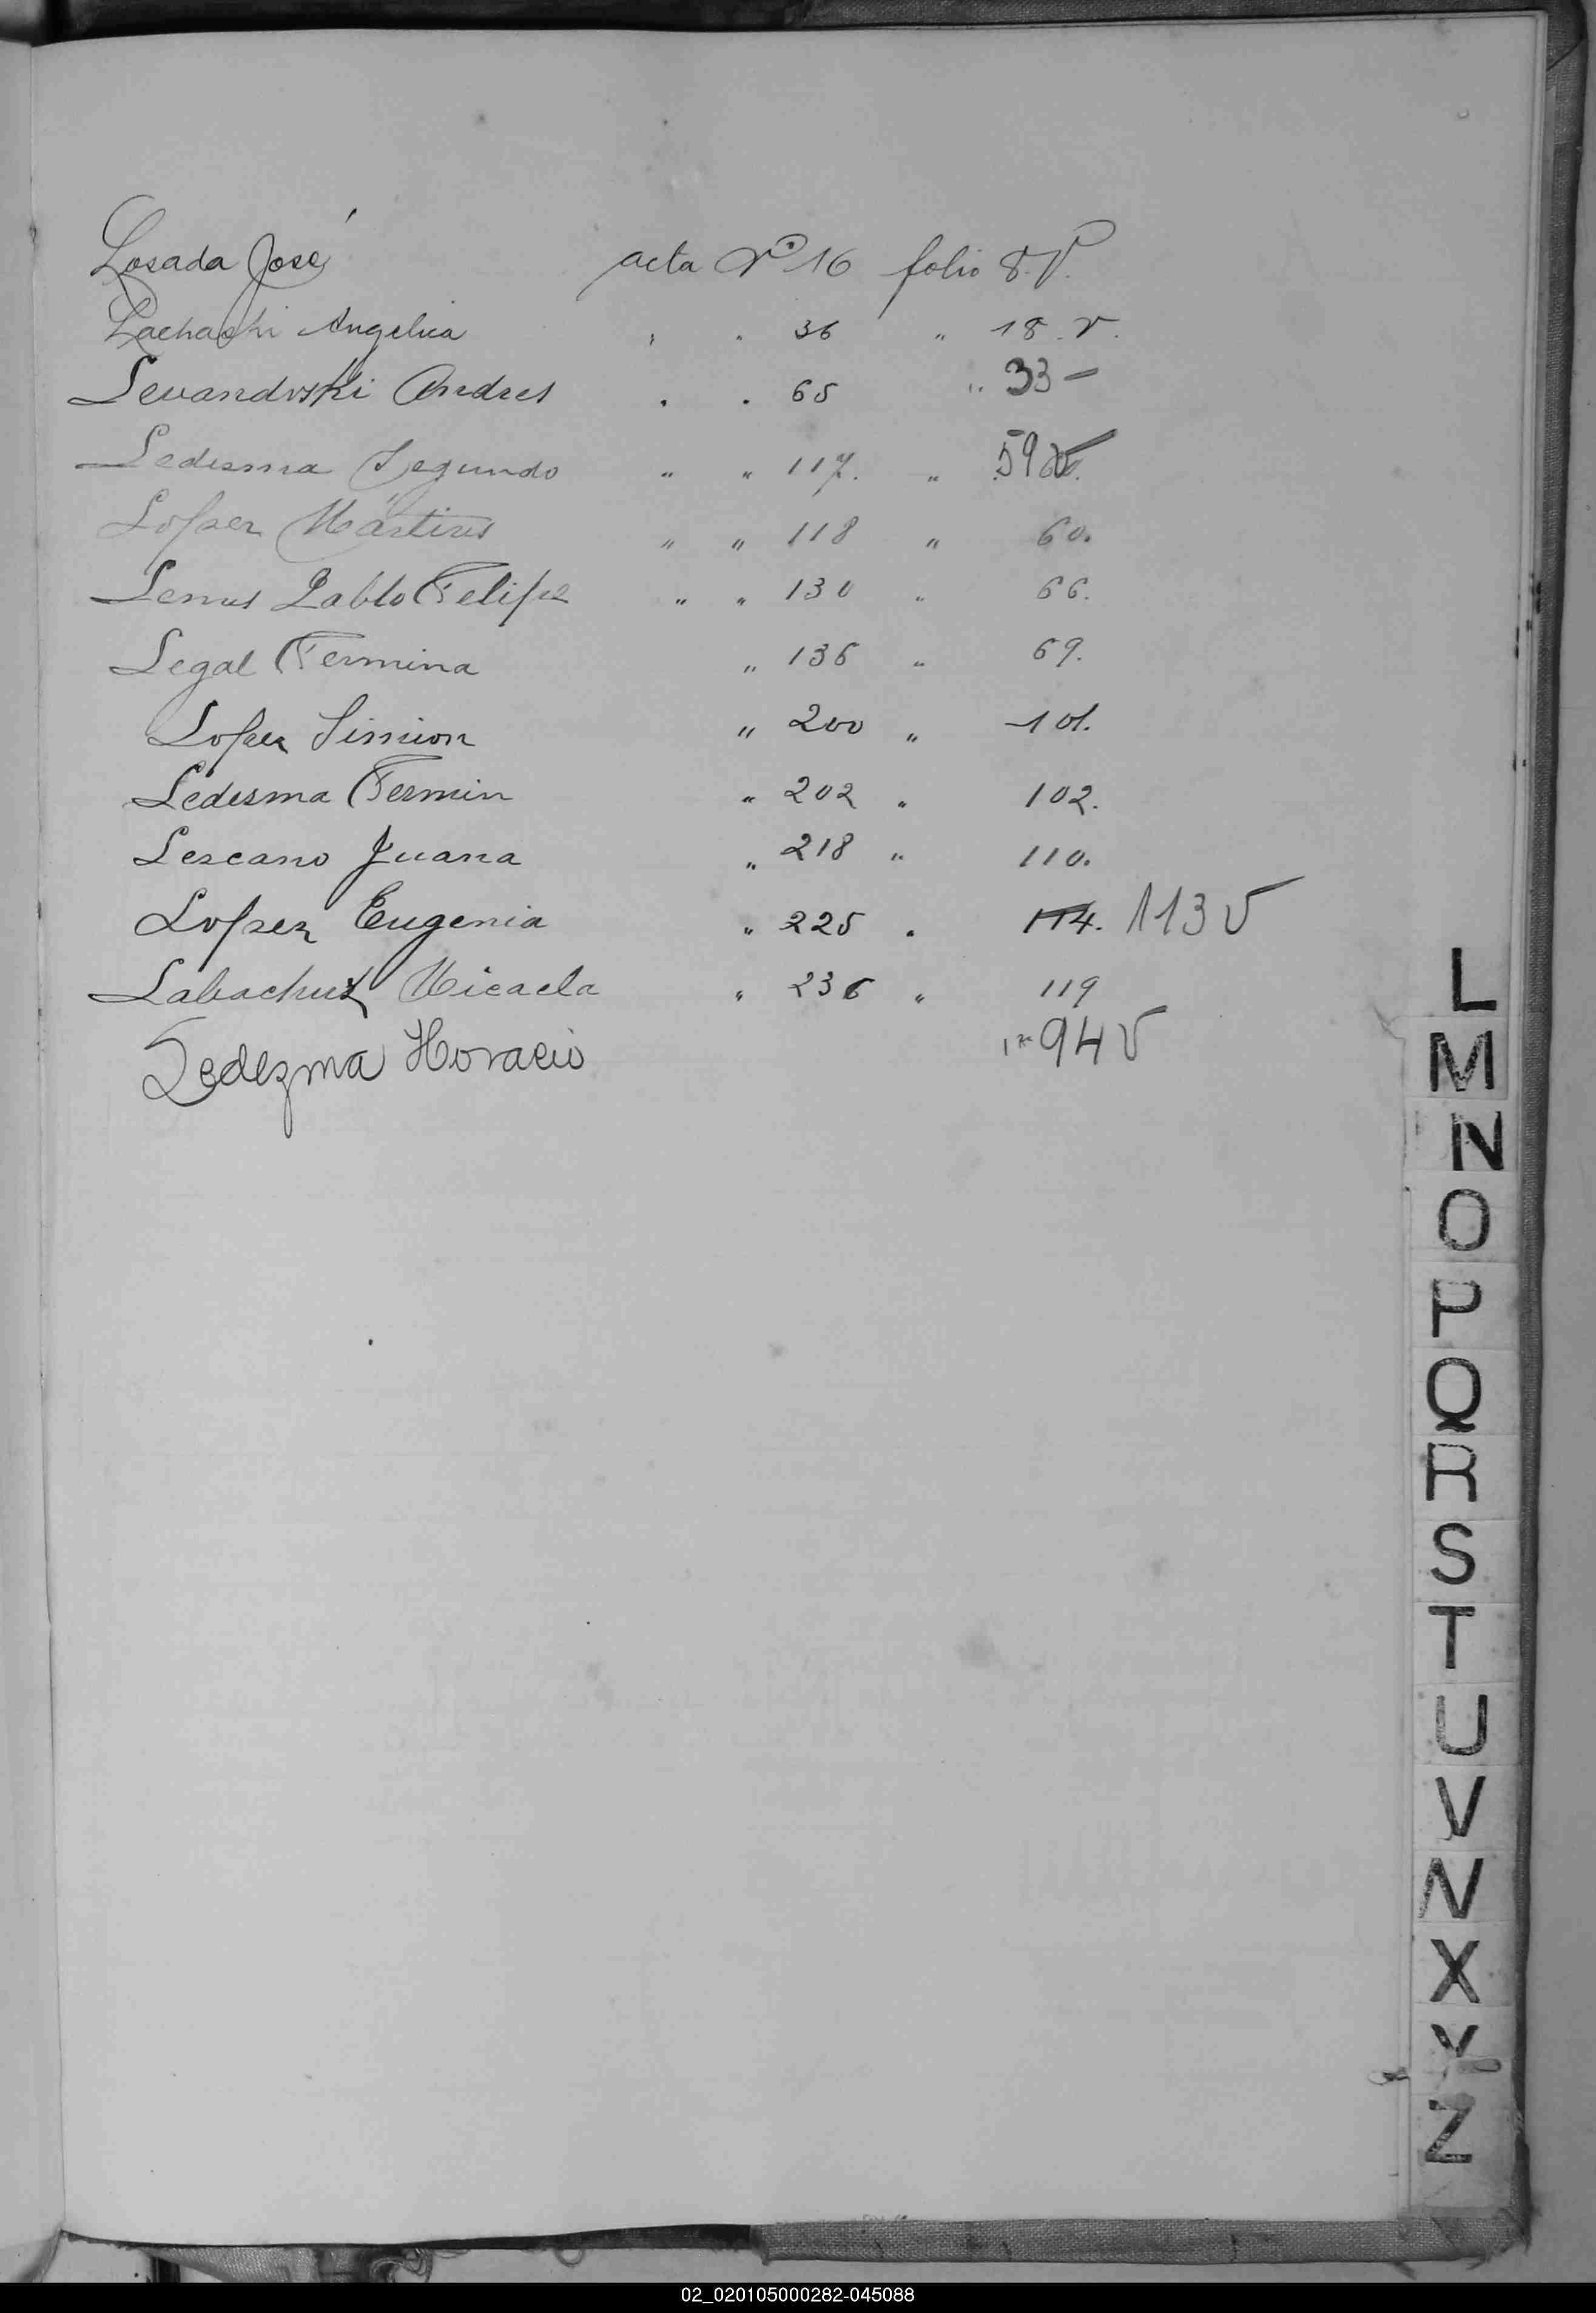 Losada José acta Nº 16 folio 8.V.
Lachaski Angelica " " 36 " 18.v.
Levandoski Andres " " 65 " 33 -
Ledesma Segundo " " 117. " 59v.
Lopez Martires " " 118 " 60.
Lemus Pablo Felipe " " 130 " 66.
Legal Fermina " 136 " 69.
Lopez Simion " 200 " 101.
Ledesma Fermin " 202 " 102.
Lescano Juana " 218 " 110.
Lopez Eugenia " 225 " 114. 113 v
Labachuk Micaela " 236 " 119
Ledezma Horacio 94 v
L
M
N
O
P
Q
R
S
T
U
V
X
Y
Z
02_020105000282-045088